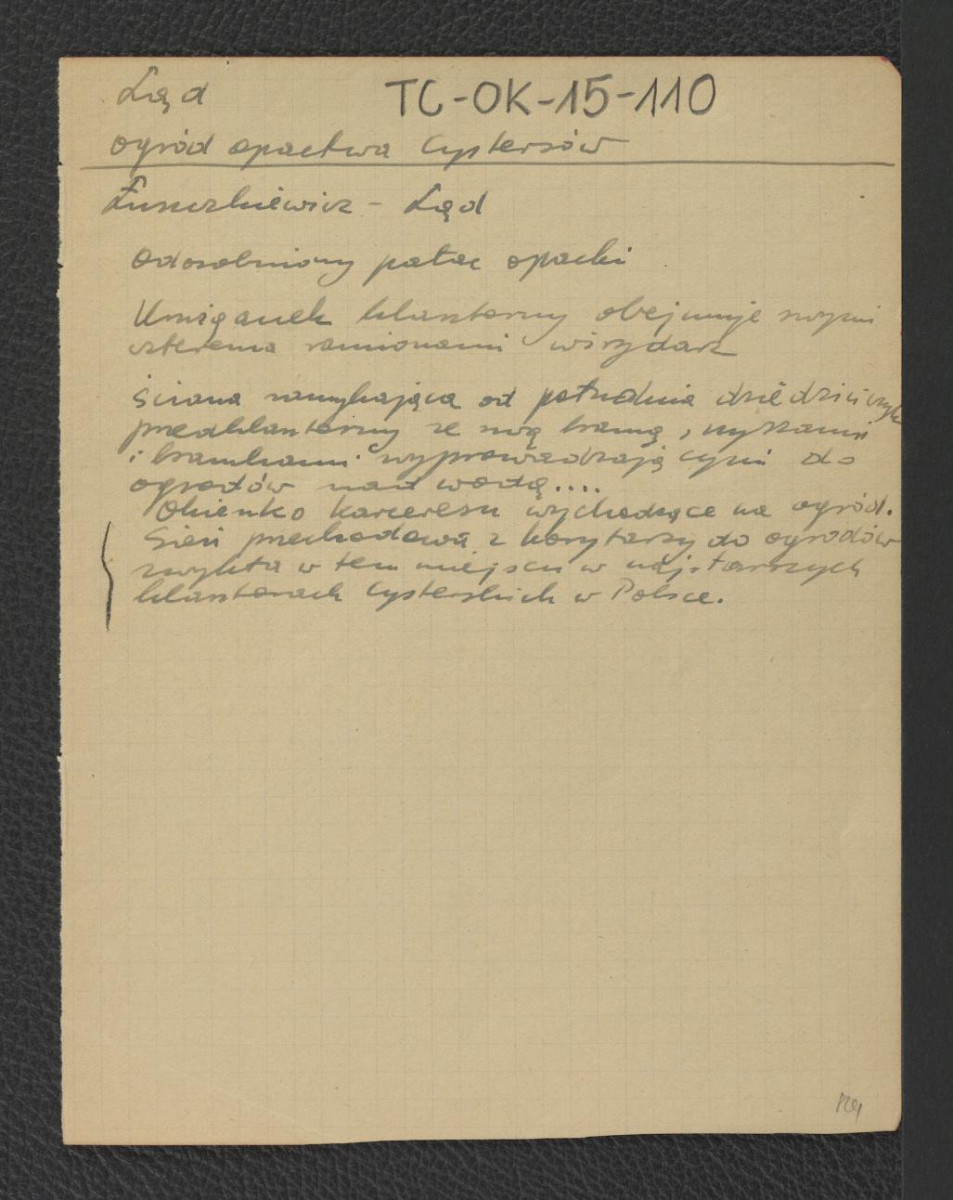 Ląd
TC-OK-15-110
ogród opactwa Cystersów
Łuszczkiewicz - Ląd
Odosobniony pałac opacki
Krużganek klasztorny obejmuje swymi
czterema ramionami wirydarz
Ściana zamykająca od południa dziedzińczyk
przedklasztorny ze swą bramą, wyżkami
i bramkami wyprowadzającymi do
ogrodów nad wodą....
Okienko karceresu wychodzące na ogród.
Sień przechodowa z korytarzy do ogrodów
zwykła w tem miejscu w najstarszych
klasztorach cysterskich w Polsce.